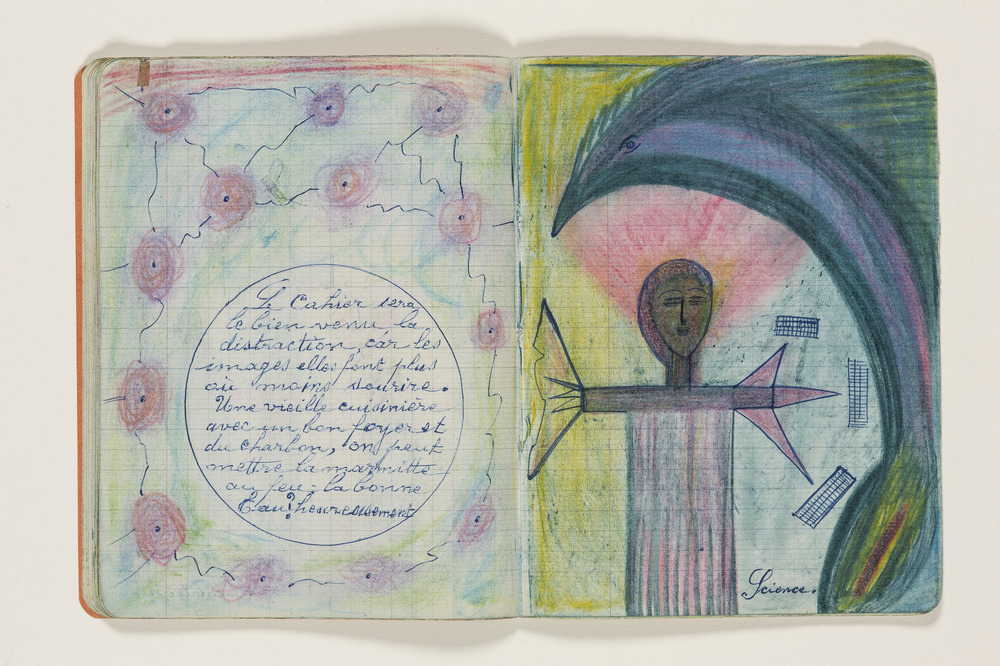 Le Cahier sera
le bien venu, la
distraction, car les
images elles font plus
ou moins sourire.
Une vieille cuisinière
avec un bon foyer et
du charbon, on peut
mettre la marmitte
au feu: la bonne
Eau? heureusement
Science.